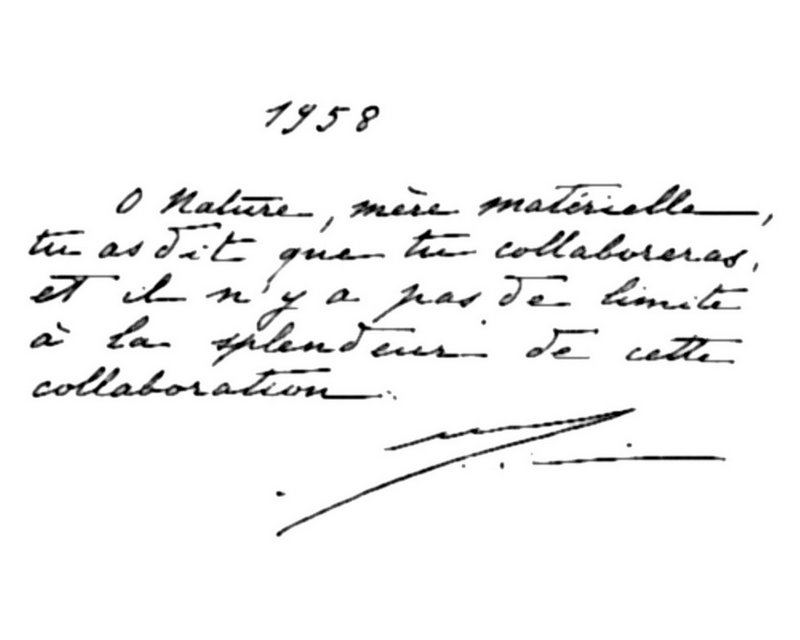 1958
O Nature, mère matérielle,
tu as dit que tu collaboreras,
et il n'y a pas de limite
à la splendeur de cette
collaboration.